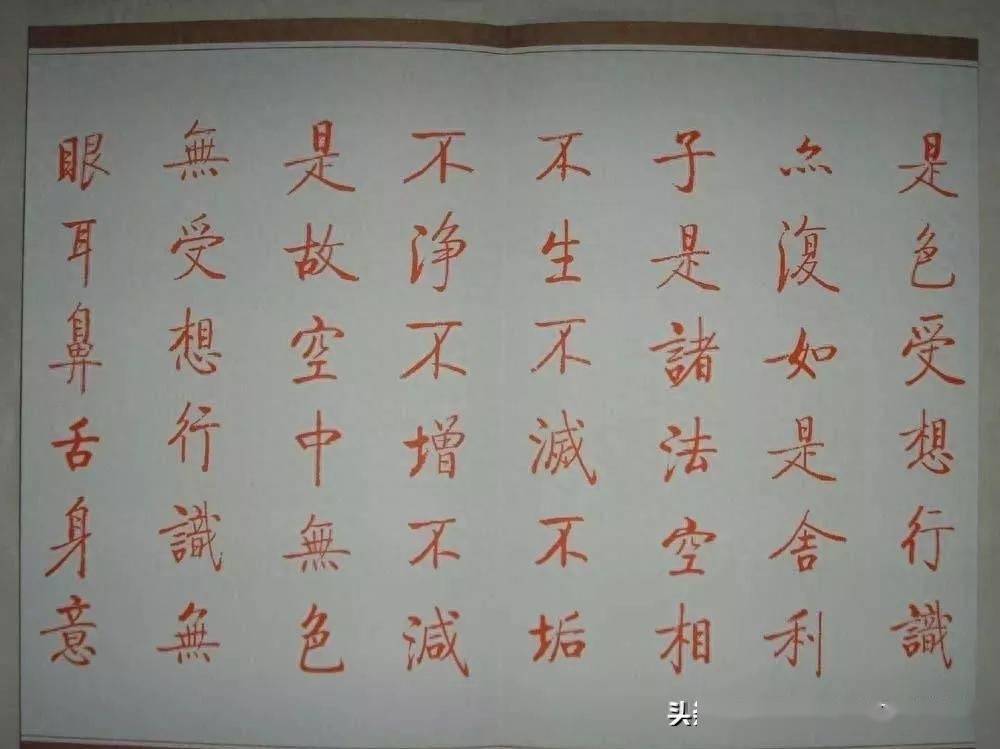 是色受想行識
亦復如是舍利
子是諸法空相
不生不滅不垢
不淨不增不減
是故空中無色
無受想行識無
眼耳鼻舌身意
头